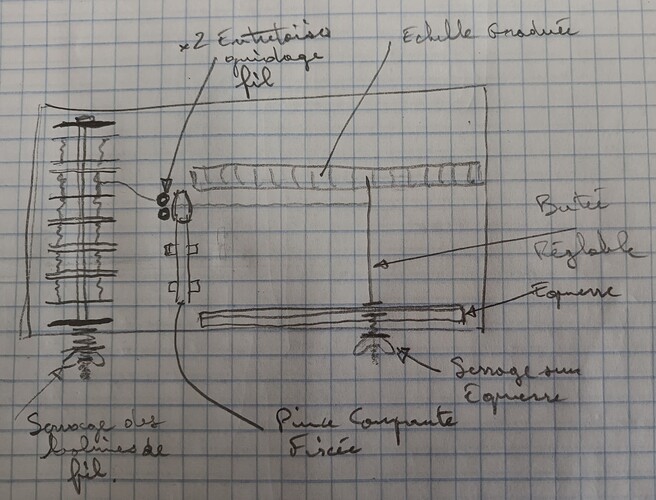 x2 Entretoises
guidage
fil
Echelle Graduée
Butée
Réglable
Equerre
Serrage sur
Equerre
Pince Coupante
Fixée
Serrage des
bobines de
fil.